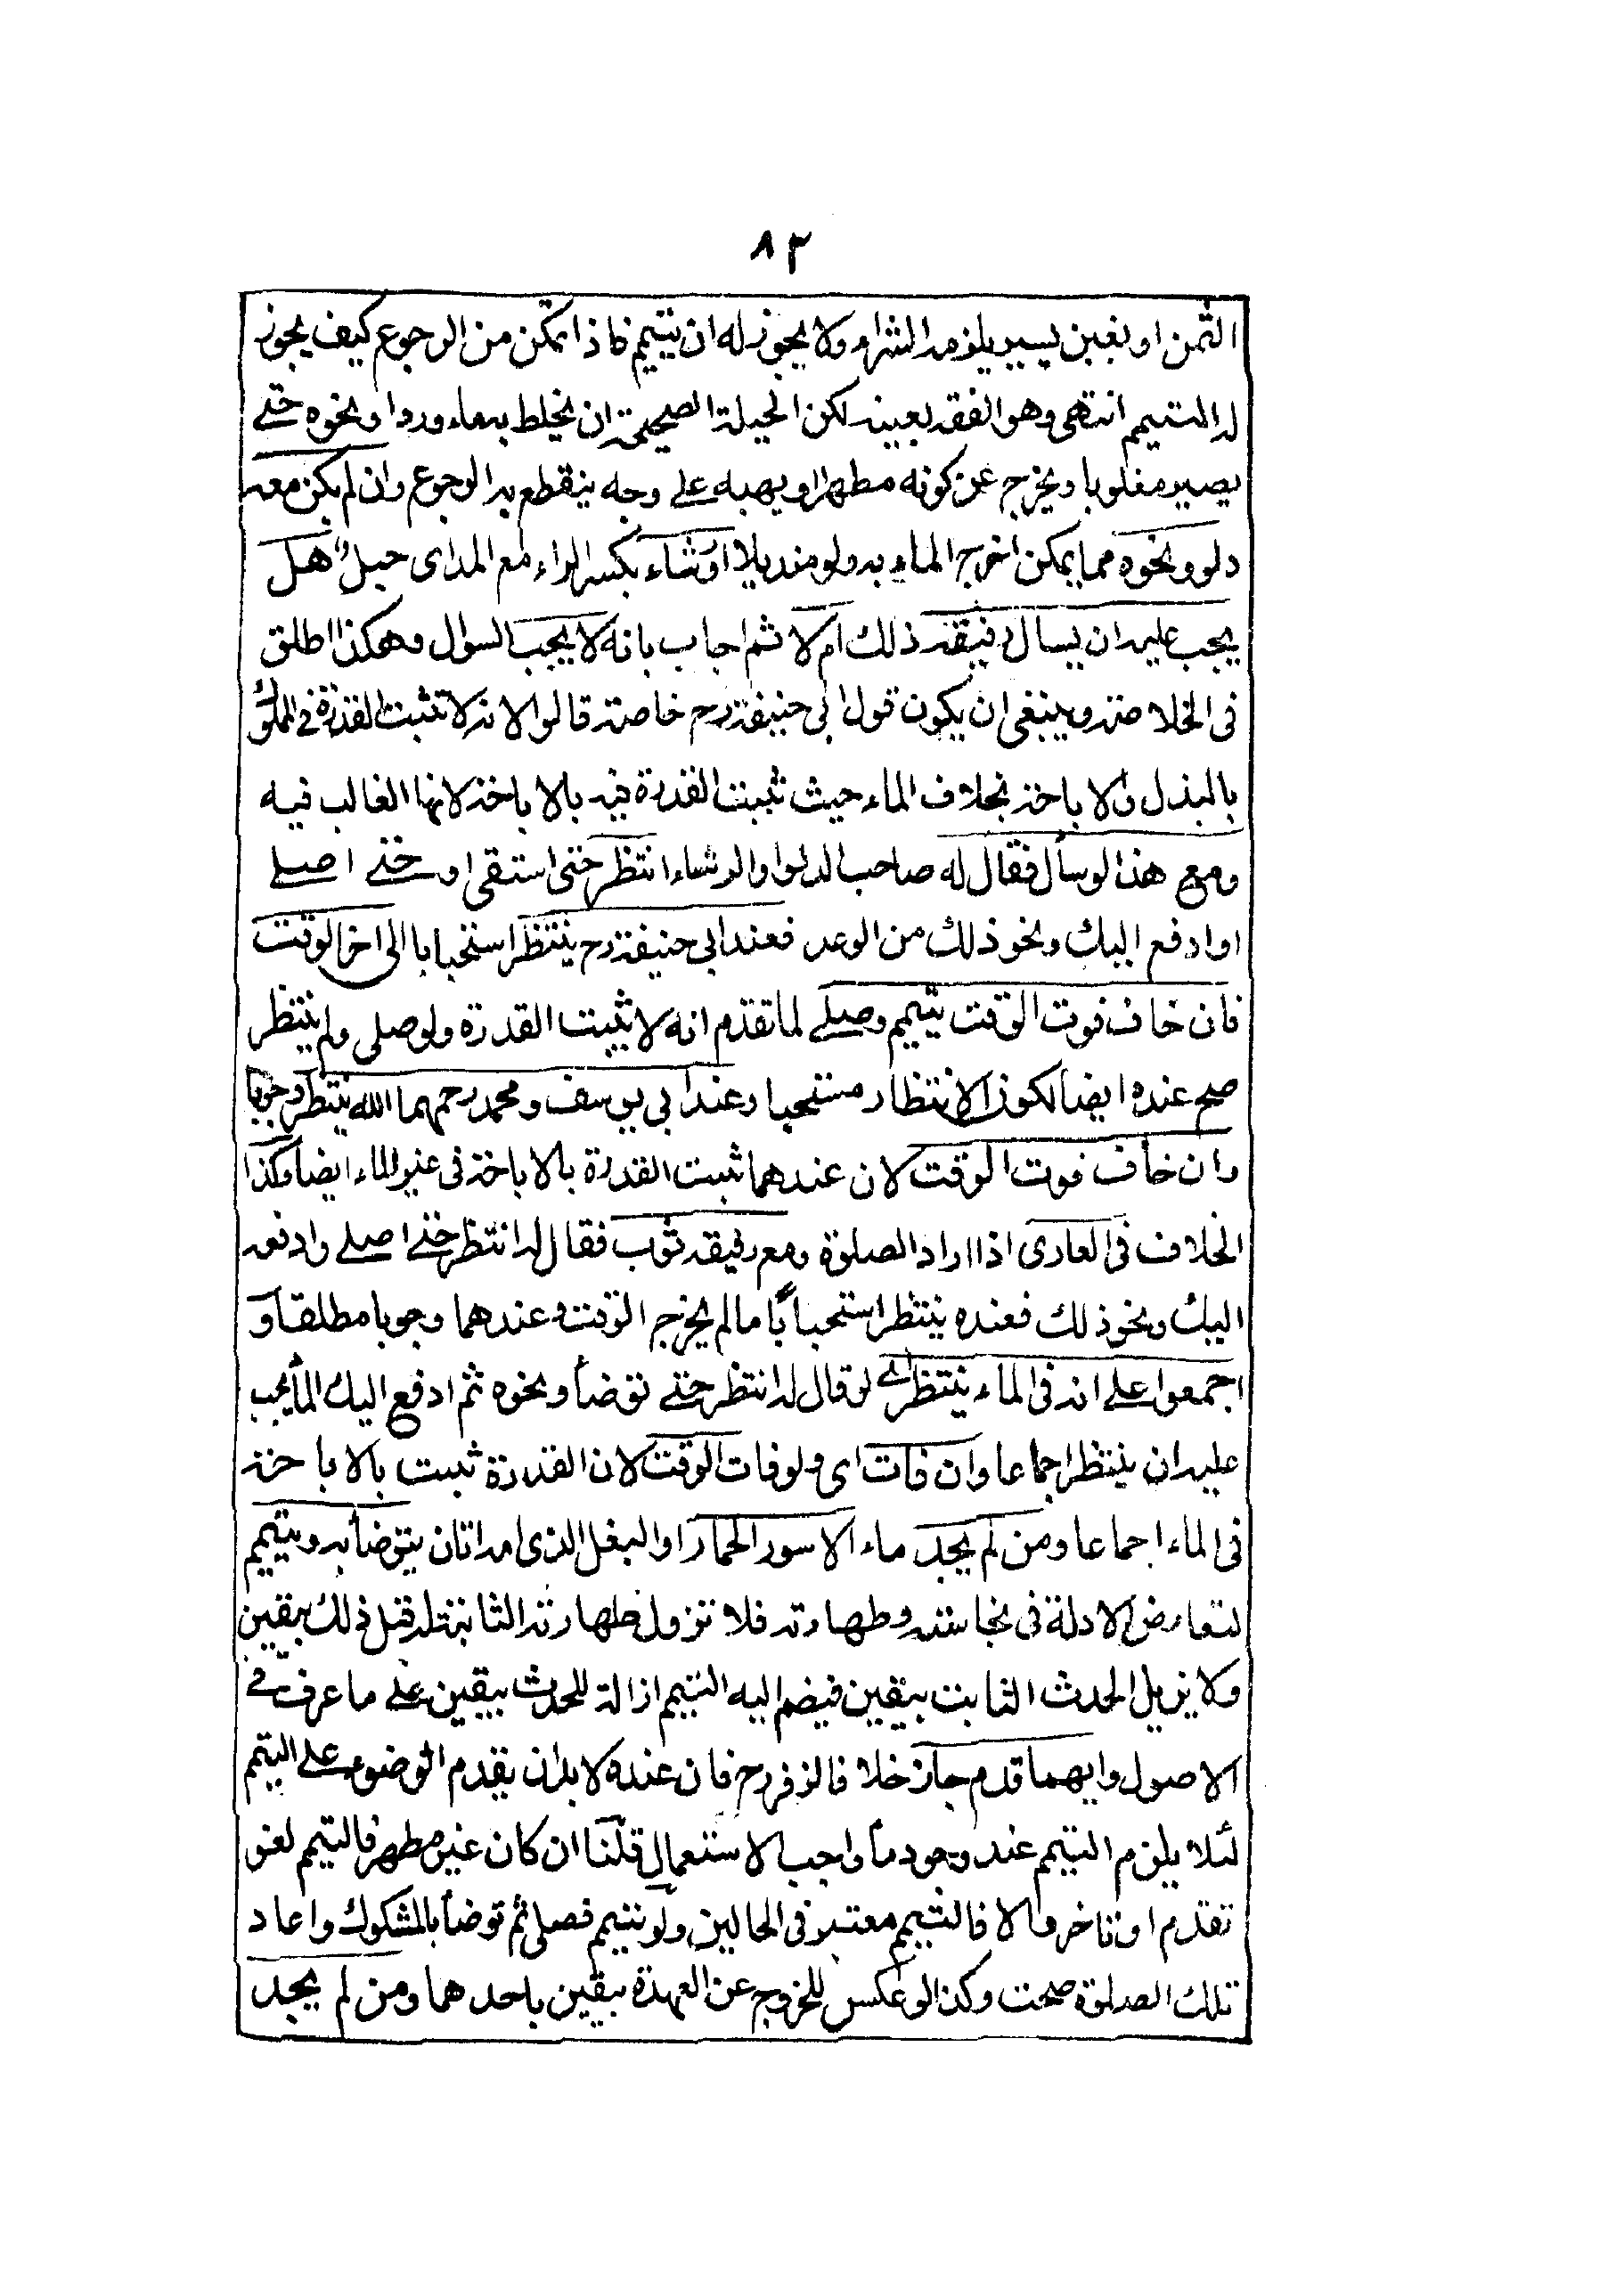 ٨٣
الثمن او بغبن يسير يلزمه الشراء ولا يجوز له ان يتيمم فاذا تمكن من الرجوع كيف يجوز
له التيمم انتهى وهو الفقه بعينه لكن الحيلة الصحيحة ان يخلط به ماء ورد او نحوه حتى
يصير مغلوبا ويخرج عن كونه مطهرا او يهبه على وجه ينقطع به الرجوع وان لم يكن معه
دلو ونحوه مما يمكن اخراج الماء به ولو منديلا او رشاء بكسر الراء مع المد اى حبل هل
يجب عليه ان يسال رفيقه ذلك ام لا ثم اجاب بانه لا يجب السوال وهكذا اطلق
فى الخلاصة وينبغى ان يكون قول ابى حنيفة رح خاصة قالوا لانه لا تثبت القدرة فى المملوك
بالبذل والاباحة بخلاف الماء حيث تثبت القدرة فيه بالاباحة لانها الغالب فيه
ومع هذا لو سأل فقال له صاحب الدلو او الرشاء انتظر حتى استقى او حتى اصلى
او ادفع اليك ونحو ذلك من الوعد فعند ابى حنيفة رح ينتظر استحبابا الى اخر الوقت
فان خاف فوت الوقت تيمم وصلى لما تقدم انه لا يثبت القدرة ولو صلى ولم ينتظر
صح عنده ايضا لكون الانتظار مستحبا وعند ابى يوسف ومحمد رحمهما الله ينتظر وجوبا
وان خاف فوت الوقت لان عندهما تثبت القدرة بالاباحة فى غير الماء ايضا وكذا
الخلاف فى العارى اذا اراد الصلوة ومع رفيقه ثوب فقال له انتظر حتى اصلى وادفعه
اليك ونحو ذلك فعنده ينتظر استحبابًا ما لم يخرج الوقت وعندهما وجوبا مطلقا و
اجمعوا على انه فى الماء ينتظر اى لو قال له انتظر حتى نتوضأ ونحوه ثم ادفع اليك الماء يجب
عليه ان ينتظر اجماعا وان فات اى ولو فات الوقت لان القدرة تثبت بالاباحة
فى الماء اجماعا ومن لم يجد ماء الا سور الحمار او البغل الذى امه اتان يتوضأ به ويتيمم
لتعارض الادلة فى نجاسته وطهارته فلا تزول طهارته الثابتة له قبل ذلك بيقين
ولا يزيل الحدث الثابت بيقين فيضم اليه التيمم ازالة للحدث بيقين على ما عرف فى
الاصول وايهما قدم جاز خلافا لزفر رح فان عنده لا بد ان يقدم الوضوء على التيمم
لئلا يلزم التيمم عند وجود ماء واجب الاستعمال قلنا ان كان غير مطهر فالتيمم لغو
تقدم او تاخر والا فالتيمم معتبر فى الحالين ولو تيمم فصلى ثم توضأ بالمشكوك واعاد
تلك الصلوة صحت وكذا لو عكس للخروج عن العهدة بيقين باحدهما ومن لم يجد